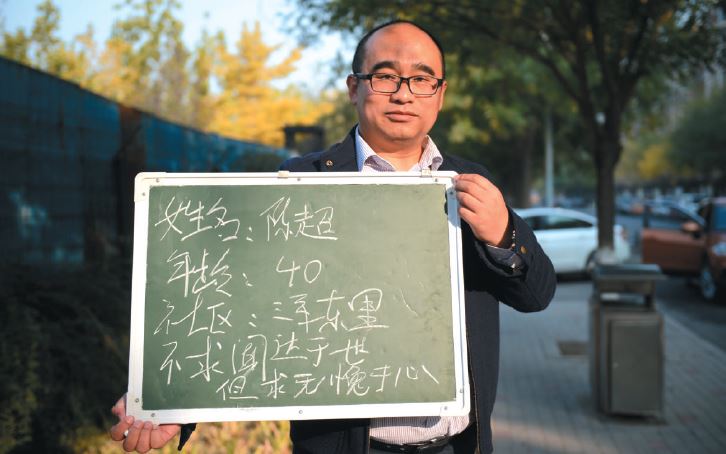 姓名：陈超
年龄：40
社区：三羊东里
不求闻达于世
但求无愧于心